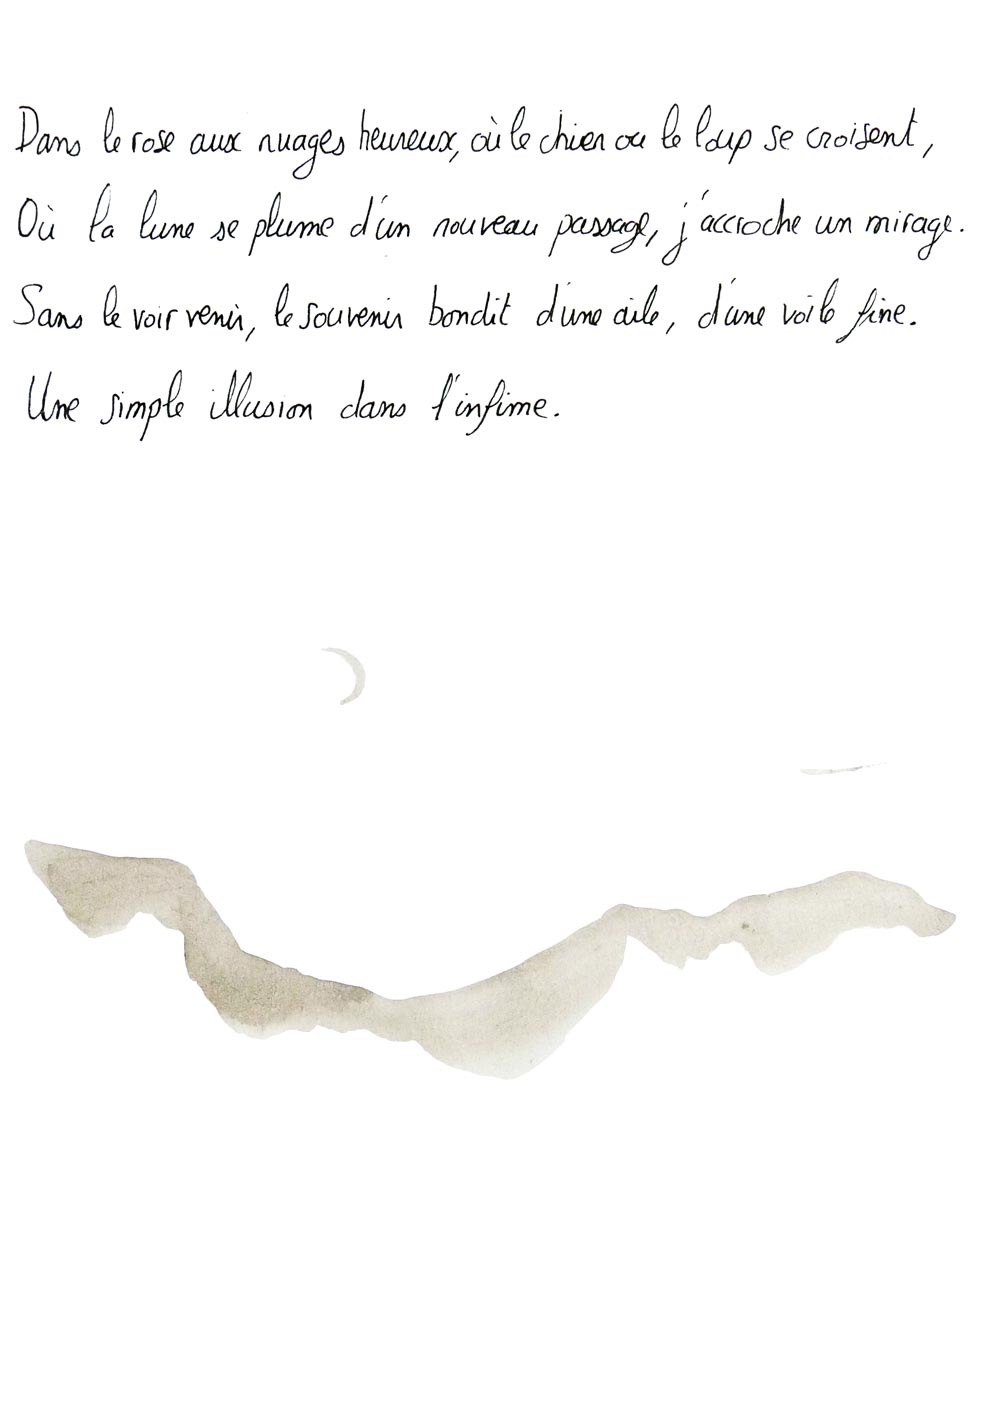 Dans le rose aux nuages heureux, où le chien ou le loup se croisent,
Où la lune se plume d'un nouveau passage, j'accroche un mirage.
Sans le voir venir, le souvenir bondit d'une aile, d'une voile fine.
Une simple illusion dans l'infime.